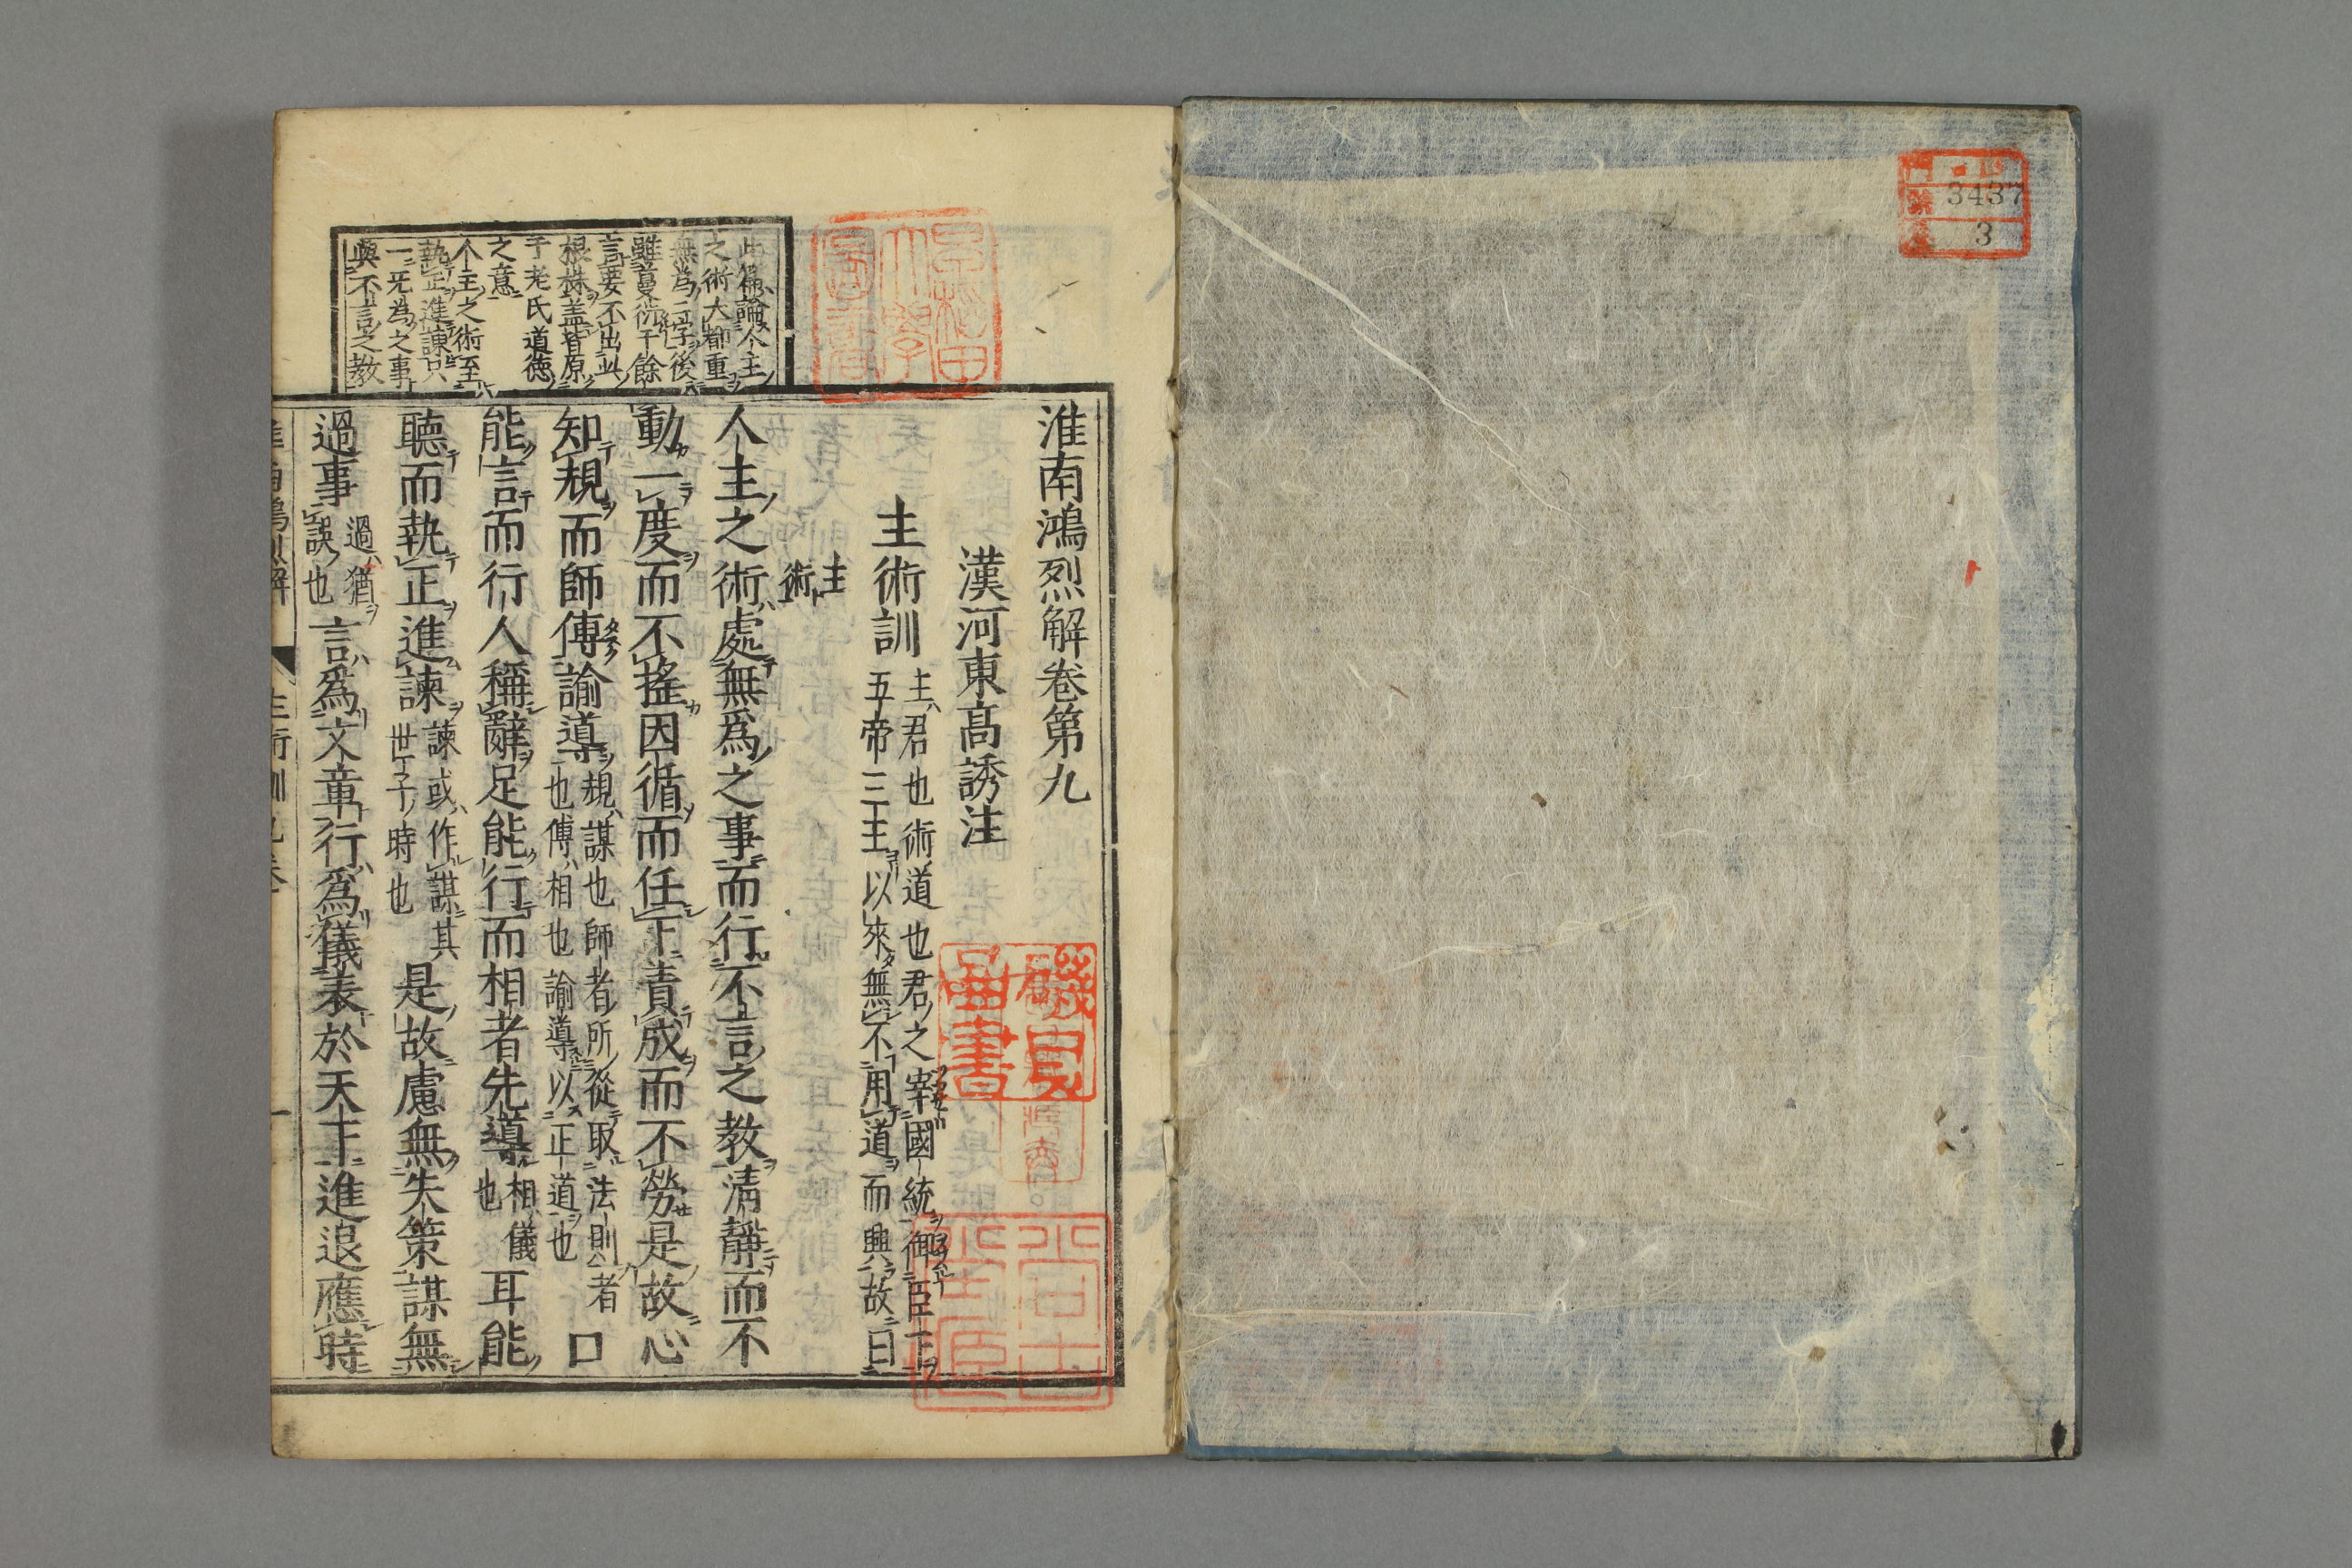 3437
3
淮南鴻烈解卷第九
漢河東高誘注
主術訓 主君也術道也君之宰國統御臣下
五帝三王以來無不用道而興故曰
主
術
人主之術處無爲之事而行不言之教清靜而不
動一度而不搖因循而任下責成而不勞是故心
知規而師傅諭導 規謀也師者所從取法則者
也傅相也諭導以正道也 口
能言而行人稱辭足能行而相者先導 相儀
也 耳能
聽而執正進諫 諫或作謀其
世子時也 是故慮無失策謀無
過事 過猶
誤也 言爲文章行爲儀表於天下進退應時
此篇論人主
之術大都重
無爲二字後
雖蔓衍千餘
言要不出此
根株盖皆原
于老氏道德
之意
人主之術至
執正進諫只
一无為之事
與不言之教
早稻田
大學
圖書